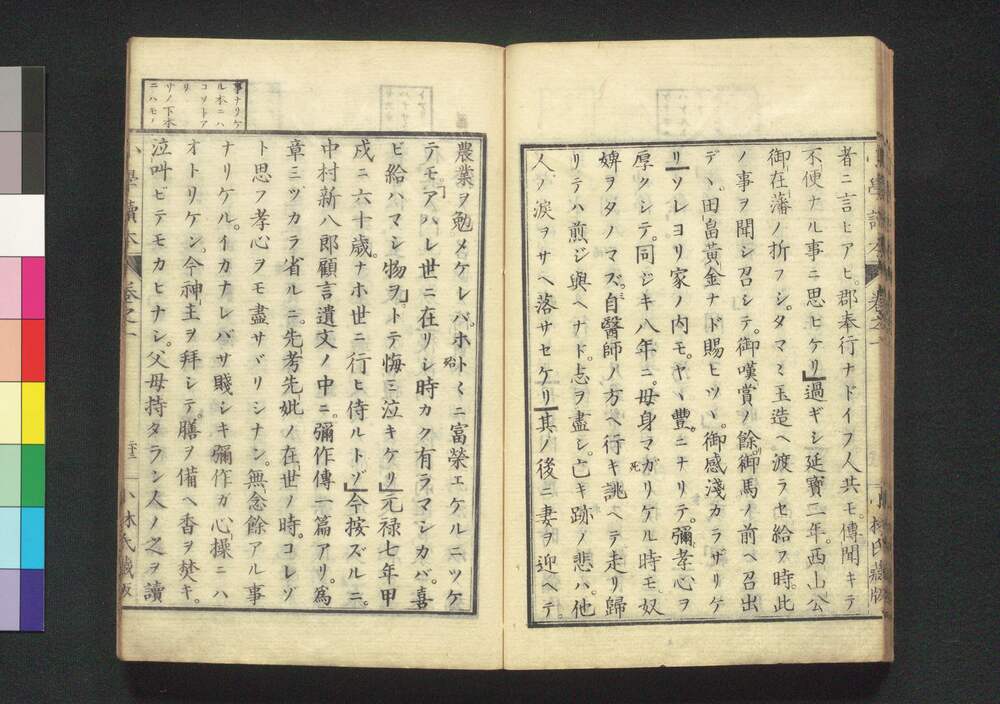 者ニ言ヒアヒ。郡奉行ナドイフ人共モ。傳聞キテ
不便ナル事ニ思ヒケリ」過ギシ延寶二年。西山公
御在藩ノ折フシ。タマ〻玉造ヘ。渡ラセ給フ時。此
ノ事ヲ聞シ召シテ。御嘆賞ノ餘。御馬ノ前ヘ召出
デヽ。田畠黃金ナド賜ヒツヽ。御感淺カラザリケ
リ」ソレヨリ家ノ内モ。ヤヽ豐ニナリテ。彌孝心ヲ
厚クシテ。同ジキ八年ニ。母身マガリケル時モ。奴
婢ヲタノマズ。自醫師ノ方ヘ行キ誂ヘテ走リ歸
リテハ煎ジ與ヘナド。志ヲ盡シ。亡キ跡ノ悲ハ。他
人ノ淚ヲサヘ落サセケリ」其ノ後ニ妻ヲ迎ヘテ。
小學讀本
卷之一
小林氏藏版
事ナリケ
ル本ニハ
コソトア
リ
サノ下本
ニハモノ
農業ヲ勉メケレバ。ホト〻ニ富榮エケルニツケ
テモ「アハレ世ニ在リシ時カク有ラマシカバ。喜
ビ給ハマシ物ヲ」トテ悔ミ泣キケリ」元禄七年甲
戌ニ六十歳。ナホ世ニ行ヒ侍ルトゾ」今按ズルニ。
中村新八郎顧言遺文ノ中ニ。彌作傳一篇アリ。爲
章ミヅカラ省ルニ。先考先妣ノ在世ノ時。コレゾ
ト思フ孝心ヲモ盡サヾリシナン。無念餘アル事
ナリケル。イカナレバサ賤シキ彌作ガ心操ニハ
オトリケン。今神主ヲ拜シテ。膳ヲ備ヘ香ヲ焚キ。
泣叫ビテモカヒナシ。父母持タラン人ノ之ヲ讀
小學讀本
卷之一
小林氏藏版